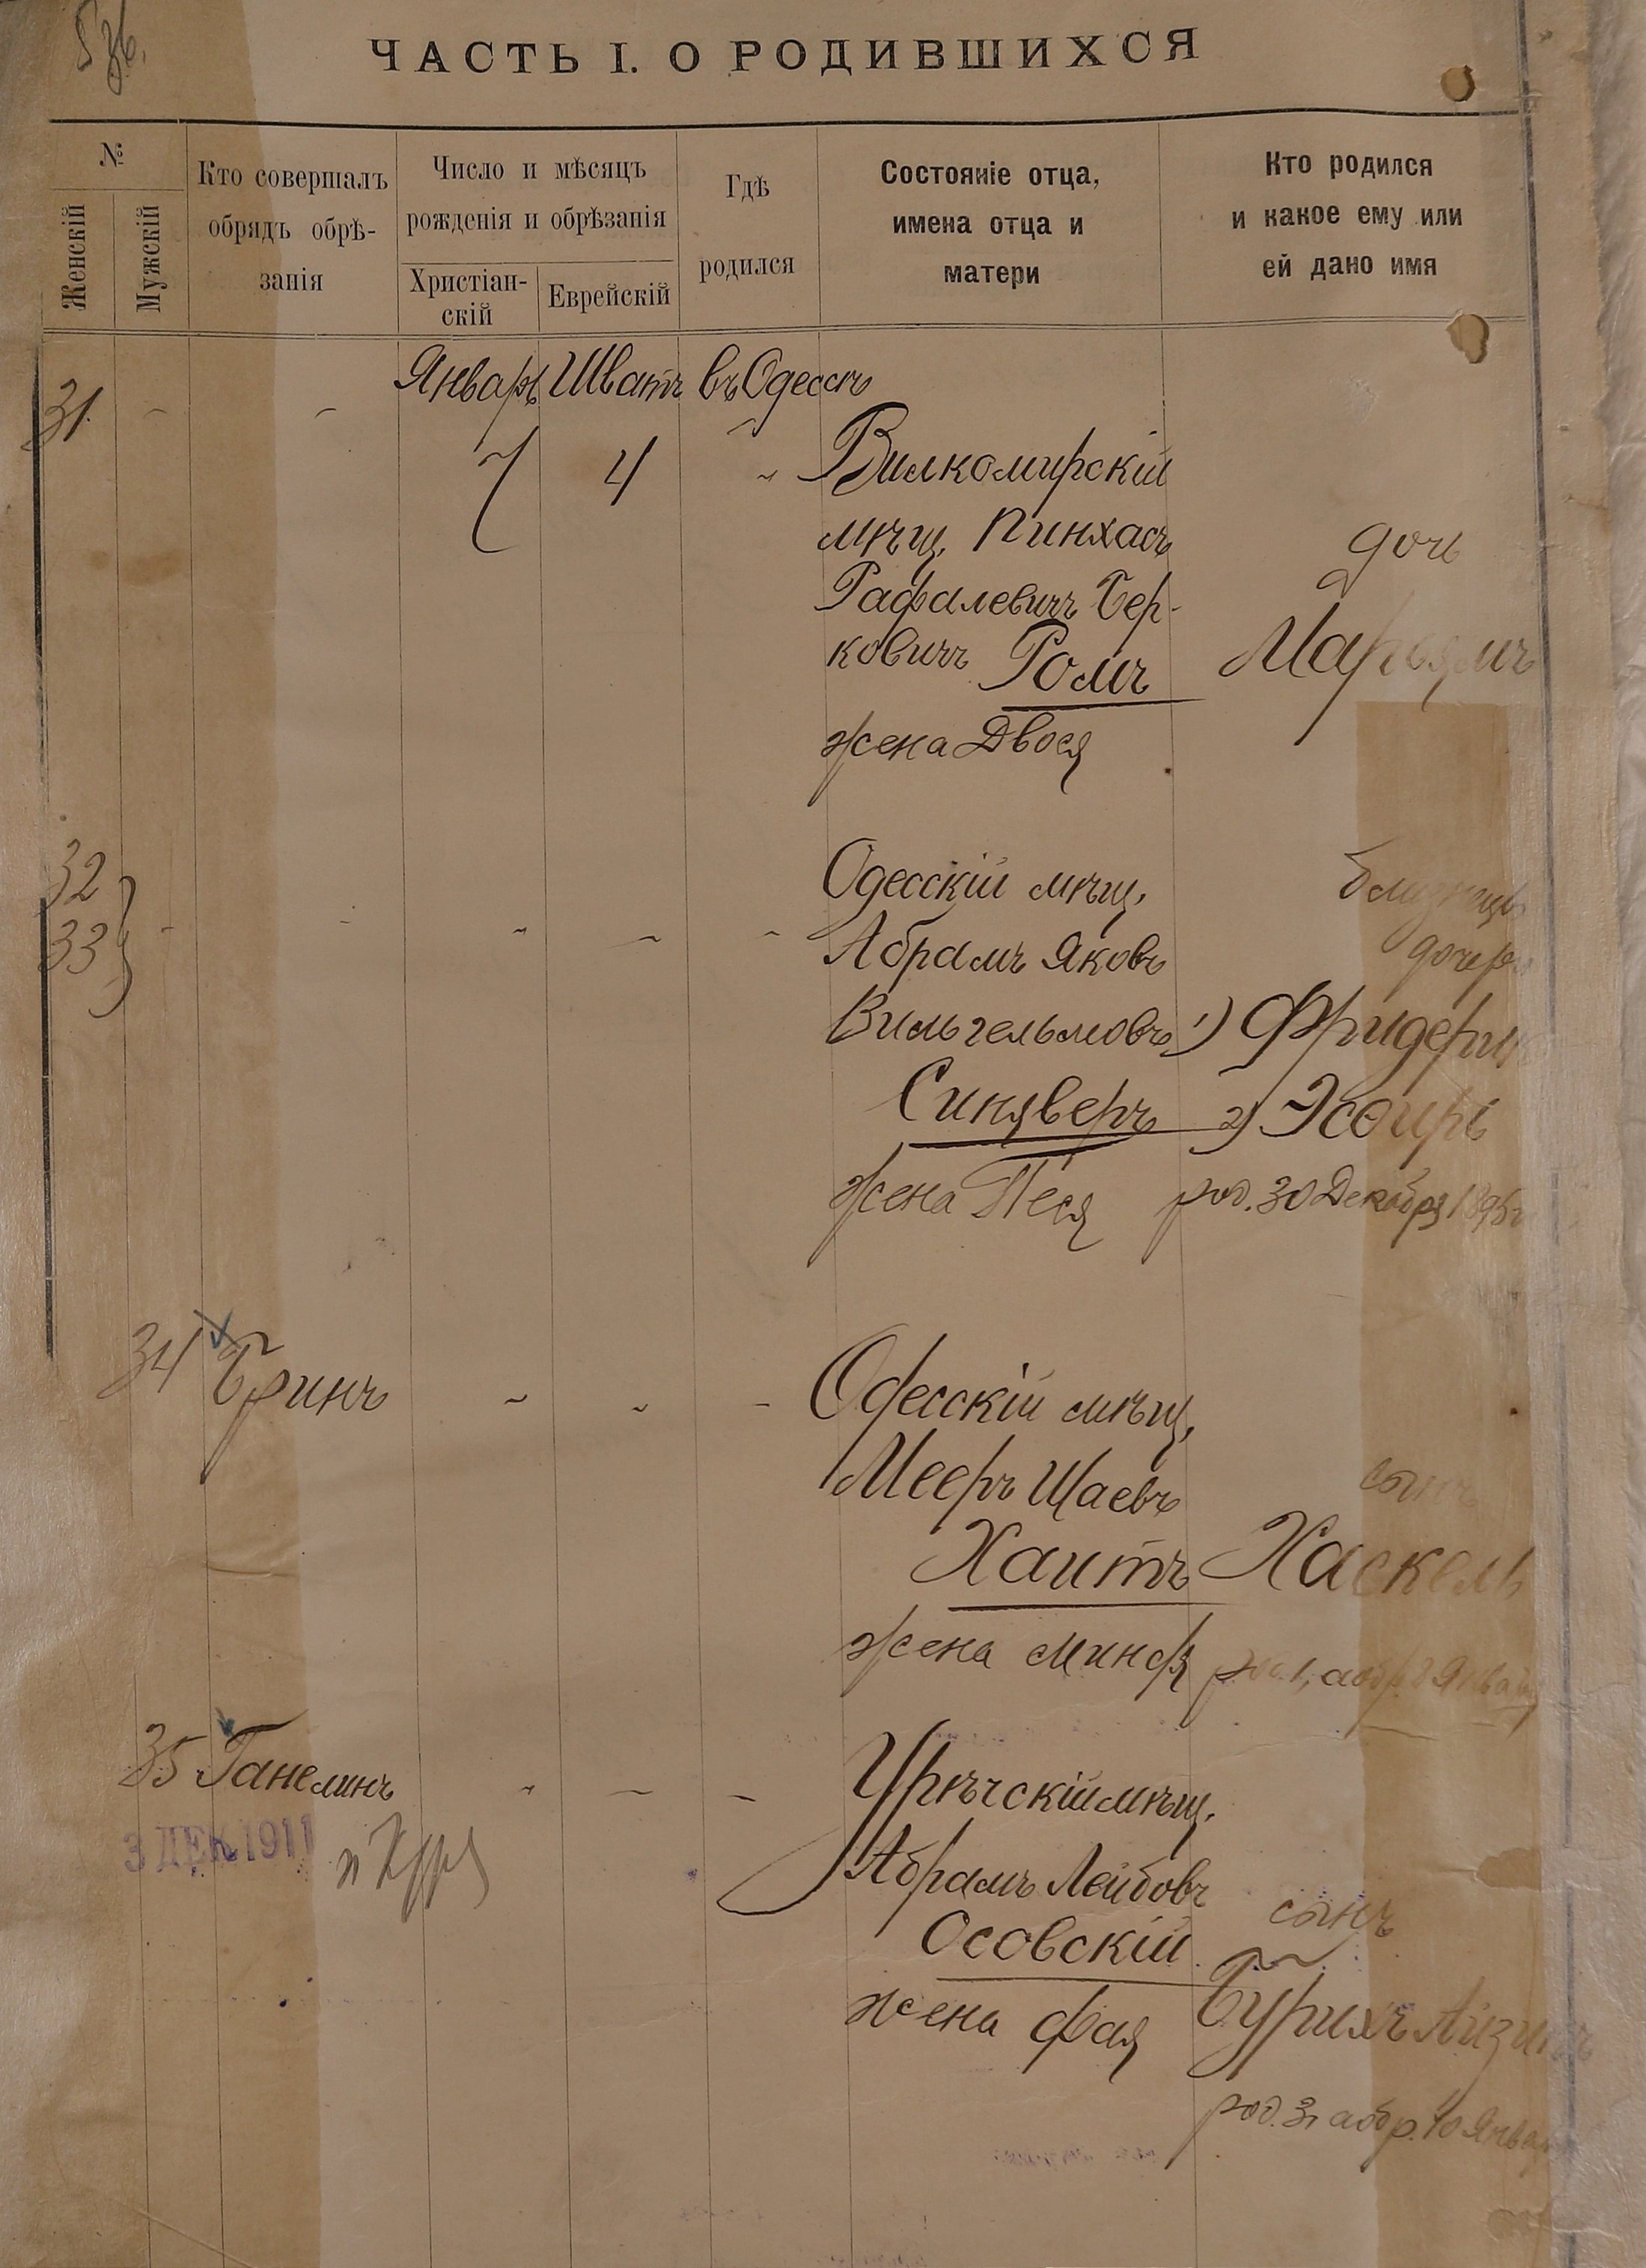 536.
ЧАСТЬ I. О РОДИВШИХСЯ
№
Женскій
Мужскій
Кто совершалъ
обрядъ обрѣ-
занія
Число и мѣсяцъ
рожденія и обрѣзанія
Христіан-
скій
Еврейскій
Гдѣ
родился
Состояніе отца,
имена отца и
матери
Кто родился
и какое ему или
ей дано имя
Январь Шватъ въ Одессѣ
31
7 4
Вилкомирскій
мѣщ. Пинхасъ
Рафалевичъ Бер-
ковичъ Ромъ
жена Двося
дочь
Марьямъ
32
33
Одесскій мѣщ.
Абрамъ Яковъ
Вильгельмовъ
Синяверъ
жена Песя
близнецы
дочери
1) Фридерик
2) Эсѳирь
род. 30 Декабря 1895 г
34 Бринъ
Одесскій мѣщ.
Мееръ Шаевъ
Хаитъ
жена Минфя
сынъ
Хаскель
род. 1, аобр. 8 Января
35 Ганелинъ
3 ДЕК 1911
Урѣчскій мѣщ.
Абрамъ Лейбовъ
Осовскій
жена Фая
сынъ
Бурихъ Айзикъ
род. 3, аобр. 10 Января